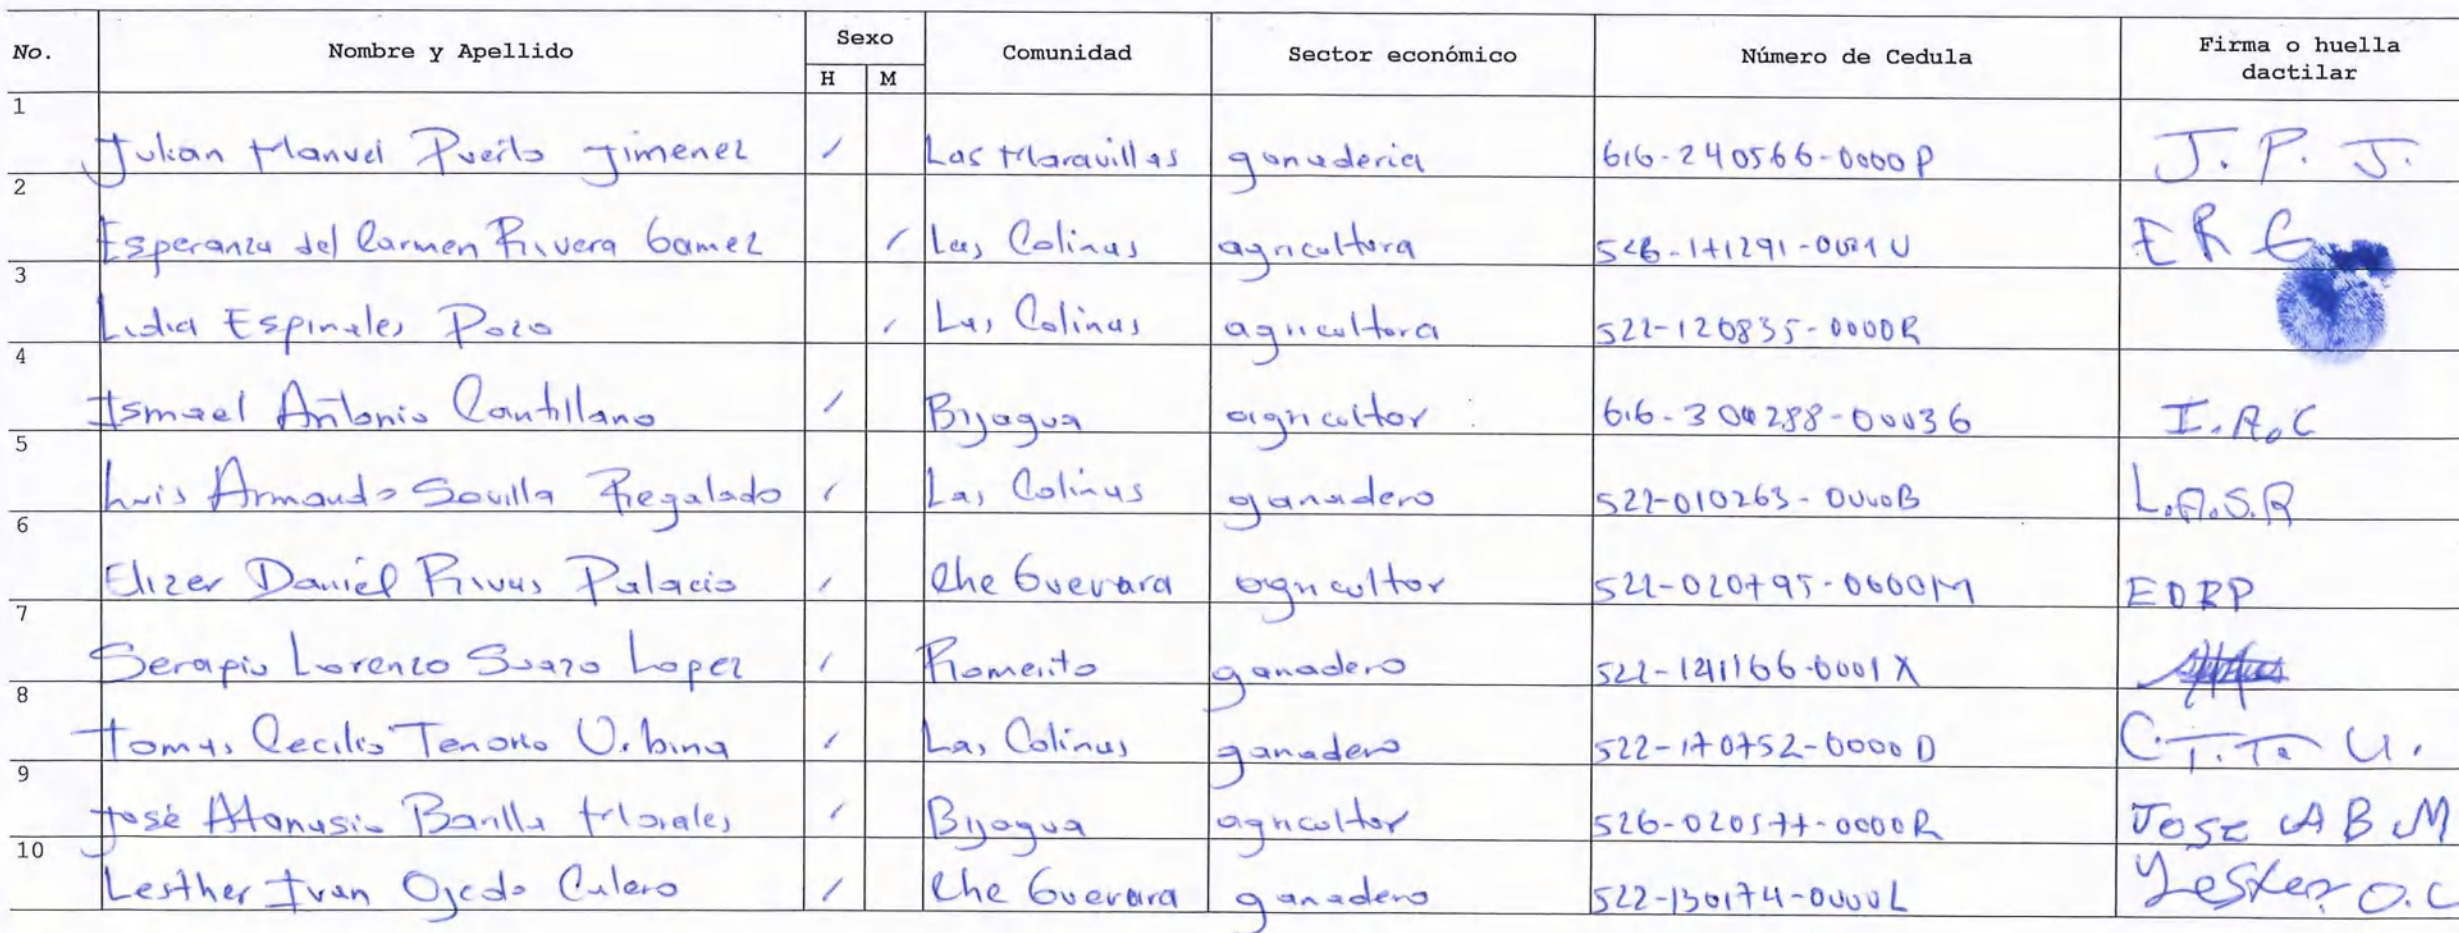 No. Nombre y Apellido Sexo Comunidad Sector económico Número de Cedula Firma o huella dactilar
H M
1
Julian Manuel Puerto Jimenez / Las Maravillas ganaderia 616-240566-0000P J. P. J.
2
Esperanza del Carmen Rivera Gamez / Las Colinas agricultora 526-171291-0001U E R G
3
Lidia Espinales Pozo / Las Colinas agricultora 522-120835-0000R
4
Ismael Antonio Cantillano / Bijagua agricultor I.A.C
5
Luis Armando Sovilla Regalado / Las Colinas ganadero 522-010263-0000B L.A.S.R
6
Elizer Daniel Rivas Palacio / Che Guevara agricultor 522-020795-0000M EDRP
7
Serapio Lorenzo Suazo Lopez / Romerito ganadero 522-141166-0001X
8
Tomas Cecilio Tenorio Urbina / Las Colinas ganadero 522-170752-0000D C.T.T. U.
9
José Atanasio Barilla Morales / Bijagua agricultor 526-020577-0000R Jose A B M
10
Lesther Ivan Ojeda Calero / Che Guevara ganadero 522-130174-0000L Lester O.C